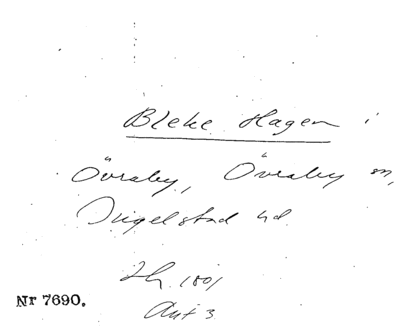 Bleke Hagen i
Övraby, Övraby sn,
Ingelstad hd.
1801
Nr 7690.
Akt 3